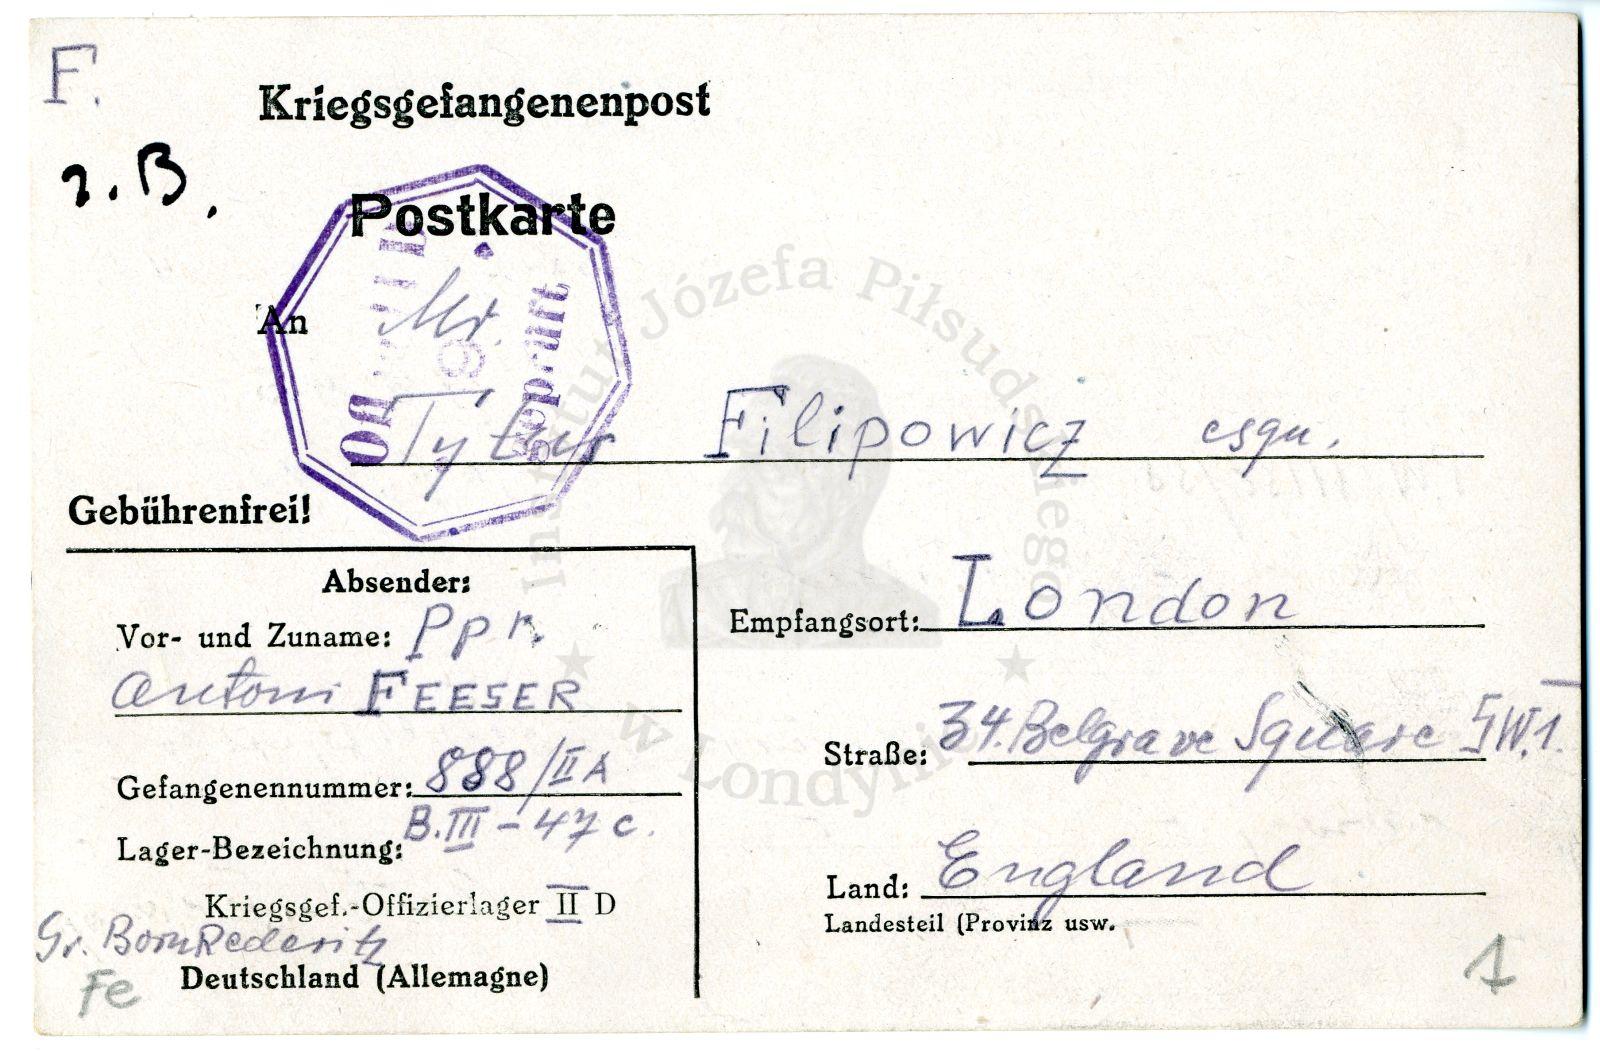 F.
Kriegsgefangenenpost
Postkarte
Geprüft
An Mr.
Tytus Filipowicz esqu.
Gebührenfrei!
Absender:
Vor- und Zuname: Ppr.
Antoni FEESER
Gefangenennummer: 888/II A
Lager-Bezeichnung: B.III - 47 c.
Kriegsgef.-Offizierlager II D
Gr. Born Rederitz
Fe Deutschland (Allemagne)
Empfangsort: London
Straße: 34. Belgrave Square SW.1.
Land: England
Landesteil (Provinz usw.
1
Instytut Józefa Piłsudskiego
w Londynie